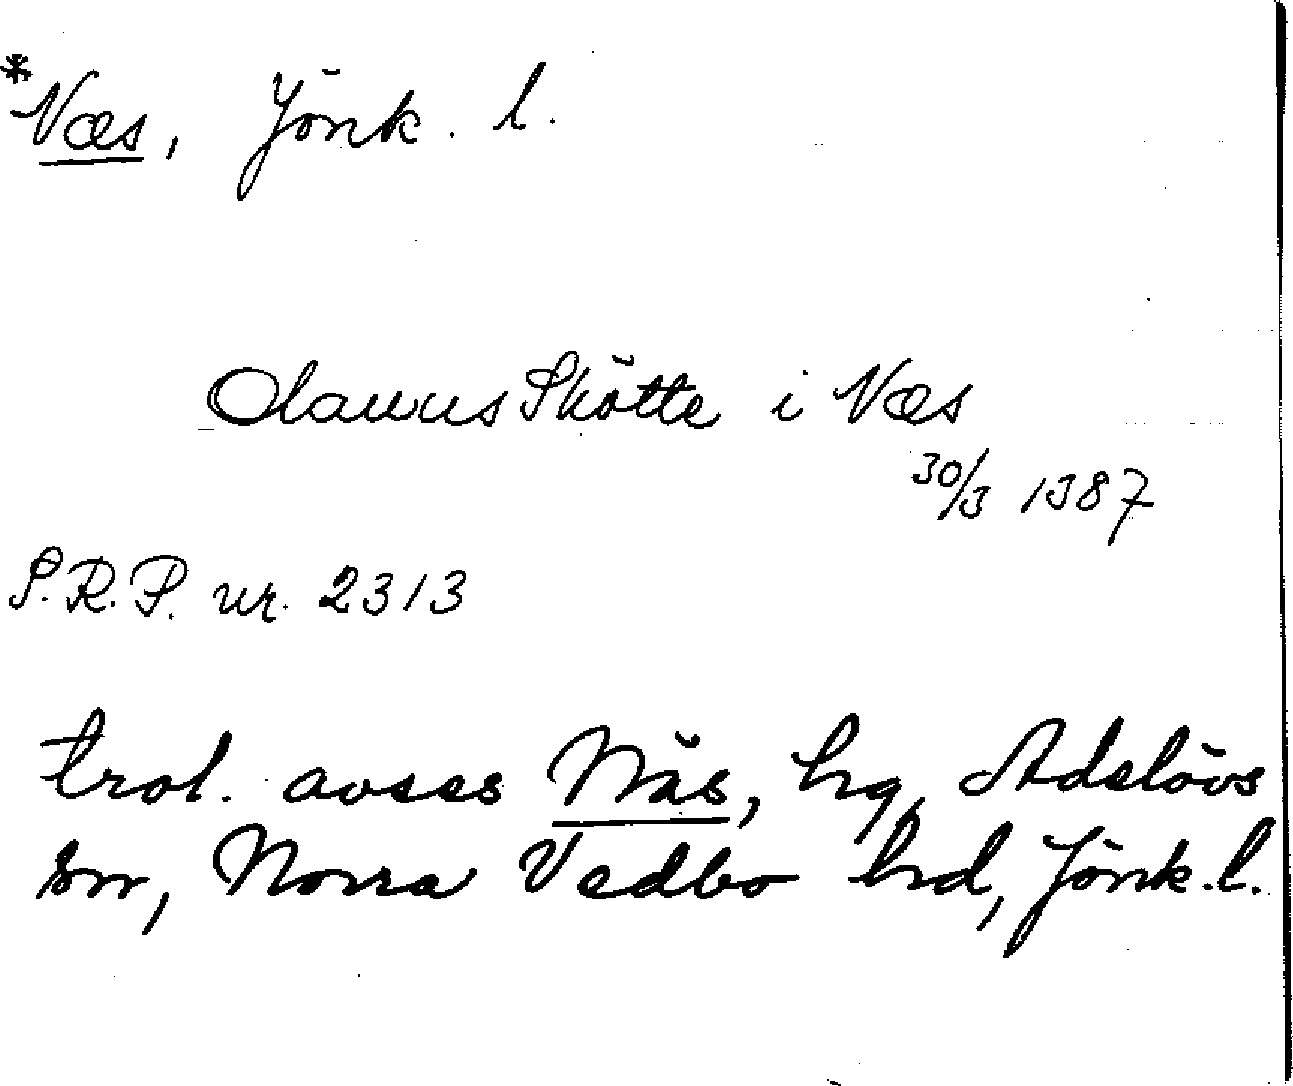 *Næs, Jönk. l.
Olauus Skötte i Næs
30/3 1387
S.R.P. nr. 2313
trol. avses Näs, hrg, Adelövs
sn, Norra Vedbo hrd, Jönk.l.